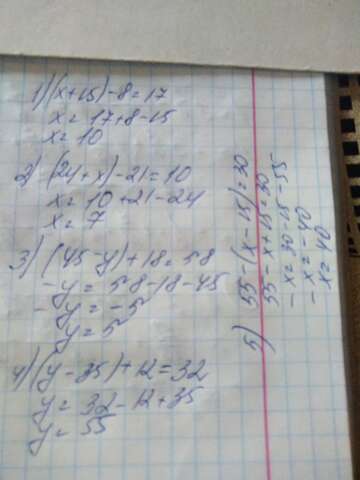 1) (x+15)-8=17
x= 17+8-15
x= 10
2) (24+x)-21=10
x= 10+21-24
x= 7
3) (45-y)+18=58
-y= 58-18-45
-y= -5
y= 5
4) (y-35)+12=32
y= 32-12+35
y= 55
5) 55-(x-15)=30
55-x+15=30
-x=30-15-55
-x=-40
x=40